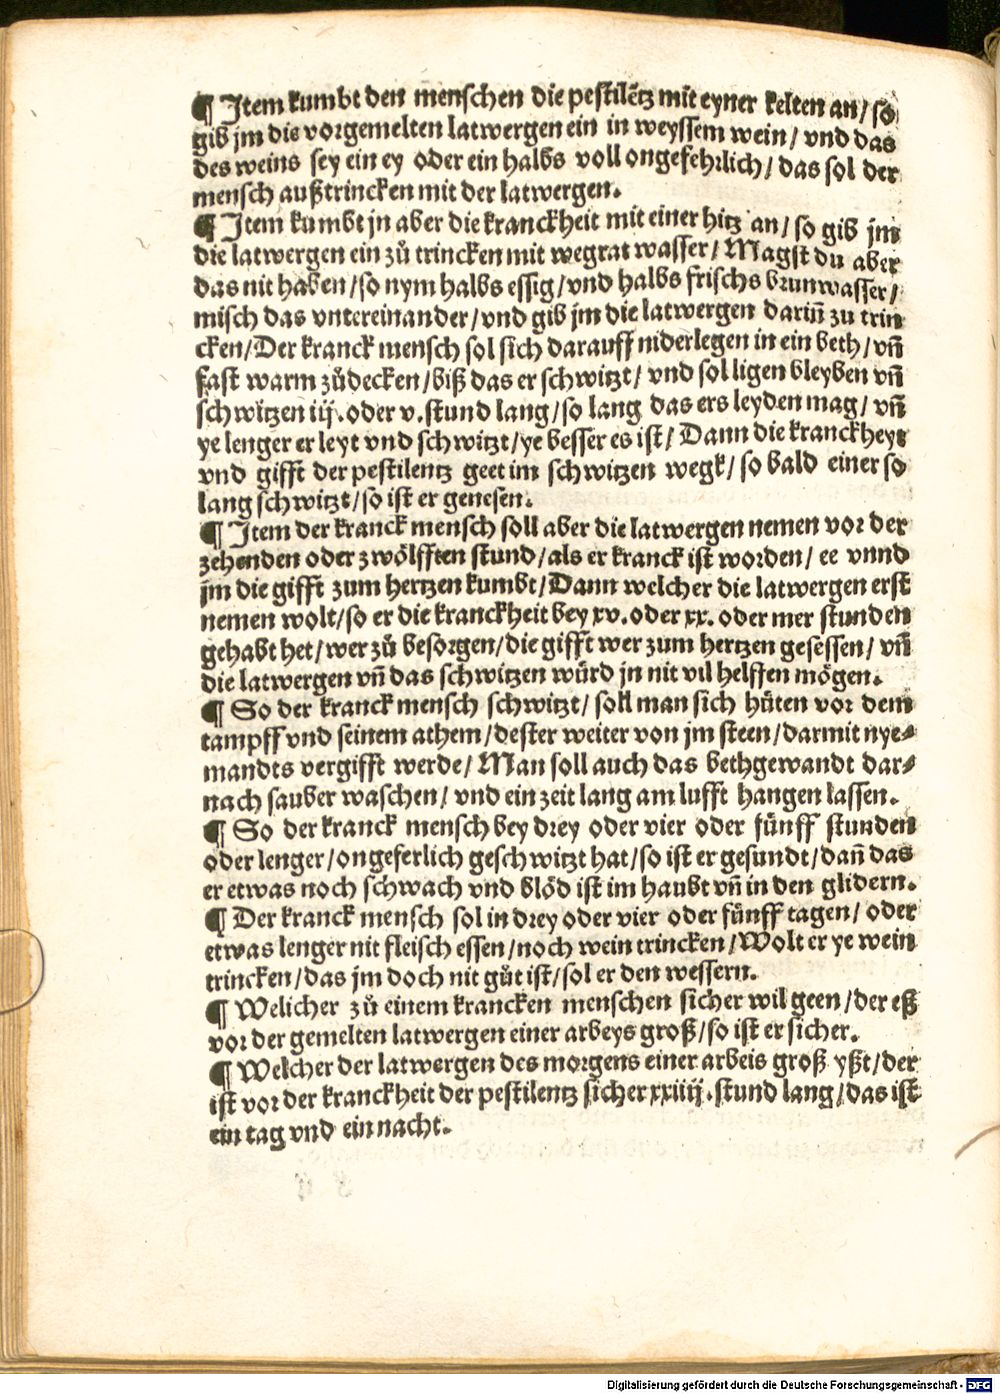 ¶ Item kumbt den menschen die pestilētz mit eyner kelten an/ so
gib jm die vorgemelten latwergen ein in weyssem wein/ vnd das
des weins sey ein ey oder ein halbs voll ongefehrlich/ das sol der
mensch außtrincken mit der latwergen.
¶ Item kumbt jn aber die kranckheit mit einer hitz an/ so gib jm
die latwergen ein zů trincken mit wegrat wasser/ Magst du aber
das nit haben/ so nym halbs essig/ vnd halbs frischs brunwasser/
misch das vntereinander/ vnd gib jm die latwergen dariñ zu trin
cken/ Der kranck mensch sol sich darauff niderlegen in ein beth/ vñ
fast warm zůdecken/ biß das er schwitzt/ vnd sol ligen bleyben vñ
schwitzen iij. oder v. stund lang/ so lang das ers leyden mag/ vñ
ye lenger er leyt vnd schwitzt/ ye besser es ist/ Dann die kranckheyt
vnd gifft der pestilentz geet im schwitzen wegk/ so bald einer so
lang schwitzt/ so ist er genesen.
¶ Item der kranck mensch soll aber die latwergen nemen vor der
zehenden oder zwölfften stund/ als er kranck ist worden/ ee vnnd
jm die gifft zum hertzen kumbt/ Dann welcher die latwergen erst
nemen wolt/ so er die kranckheit bey xv. oder xx. oder mer stunden
gehabt het/ wer zů besorgen/ die gifft wer zum hertzen gesessen/ vñ
die latwergen vñ das schwitzen würd jn nit vil helffen mögen.
¶ So der kranck mensch schwitzt/ soll man sich hüten vor dem
tampff vnd seinem athem/ dester weiter von jm steen/ darmit nye⸗
mandts vergifft werde/ Man soll auch das bethgewandt dar⸗
nach sauber waschen/ vnd ein zeit lang am lufft hangen lassen.
¶ So der kranck mensch bey drey oder vier oder fünff stunden
oder lenger/ ongeferlich geschwitzt hat/ so ist er gesundt/ dañ das
er etwas noch schwach vnd blöd ist im haubt vñ in den glidern.
¶ Der kranck mensch sol in drey oder vier oder fünff tagen/ oder
etwas lenger nit fleisch essen/ noch wein trincken/ Wolt er ye wein
trincken/ das jm doch nit gůt ist/ sol er den wessern.
¶ Welicher zů einem krancken menschen sicher wil geen/ der eß
vor der gemelten latwergen einer arbeys groß/ so ist er sicher.
¶ Welcher der latwergen des morgens einer arbeis groß yßt/ der
ist vor der kranckheit der pestilentz sicher xxiiij. stund lang/ das ist
ein tag vnd ein nacht.
Digitalisierung gefördert durch die Deutsche Forschungsgemeinschaft - DFG